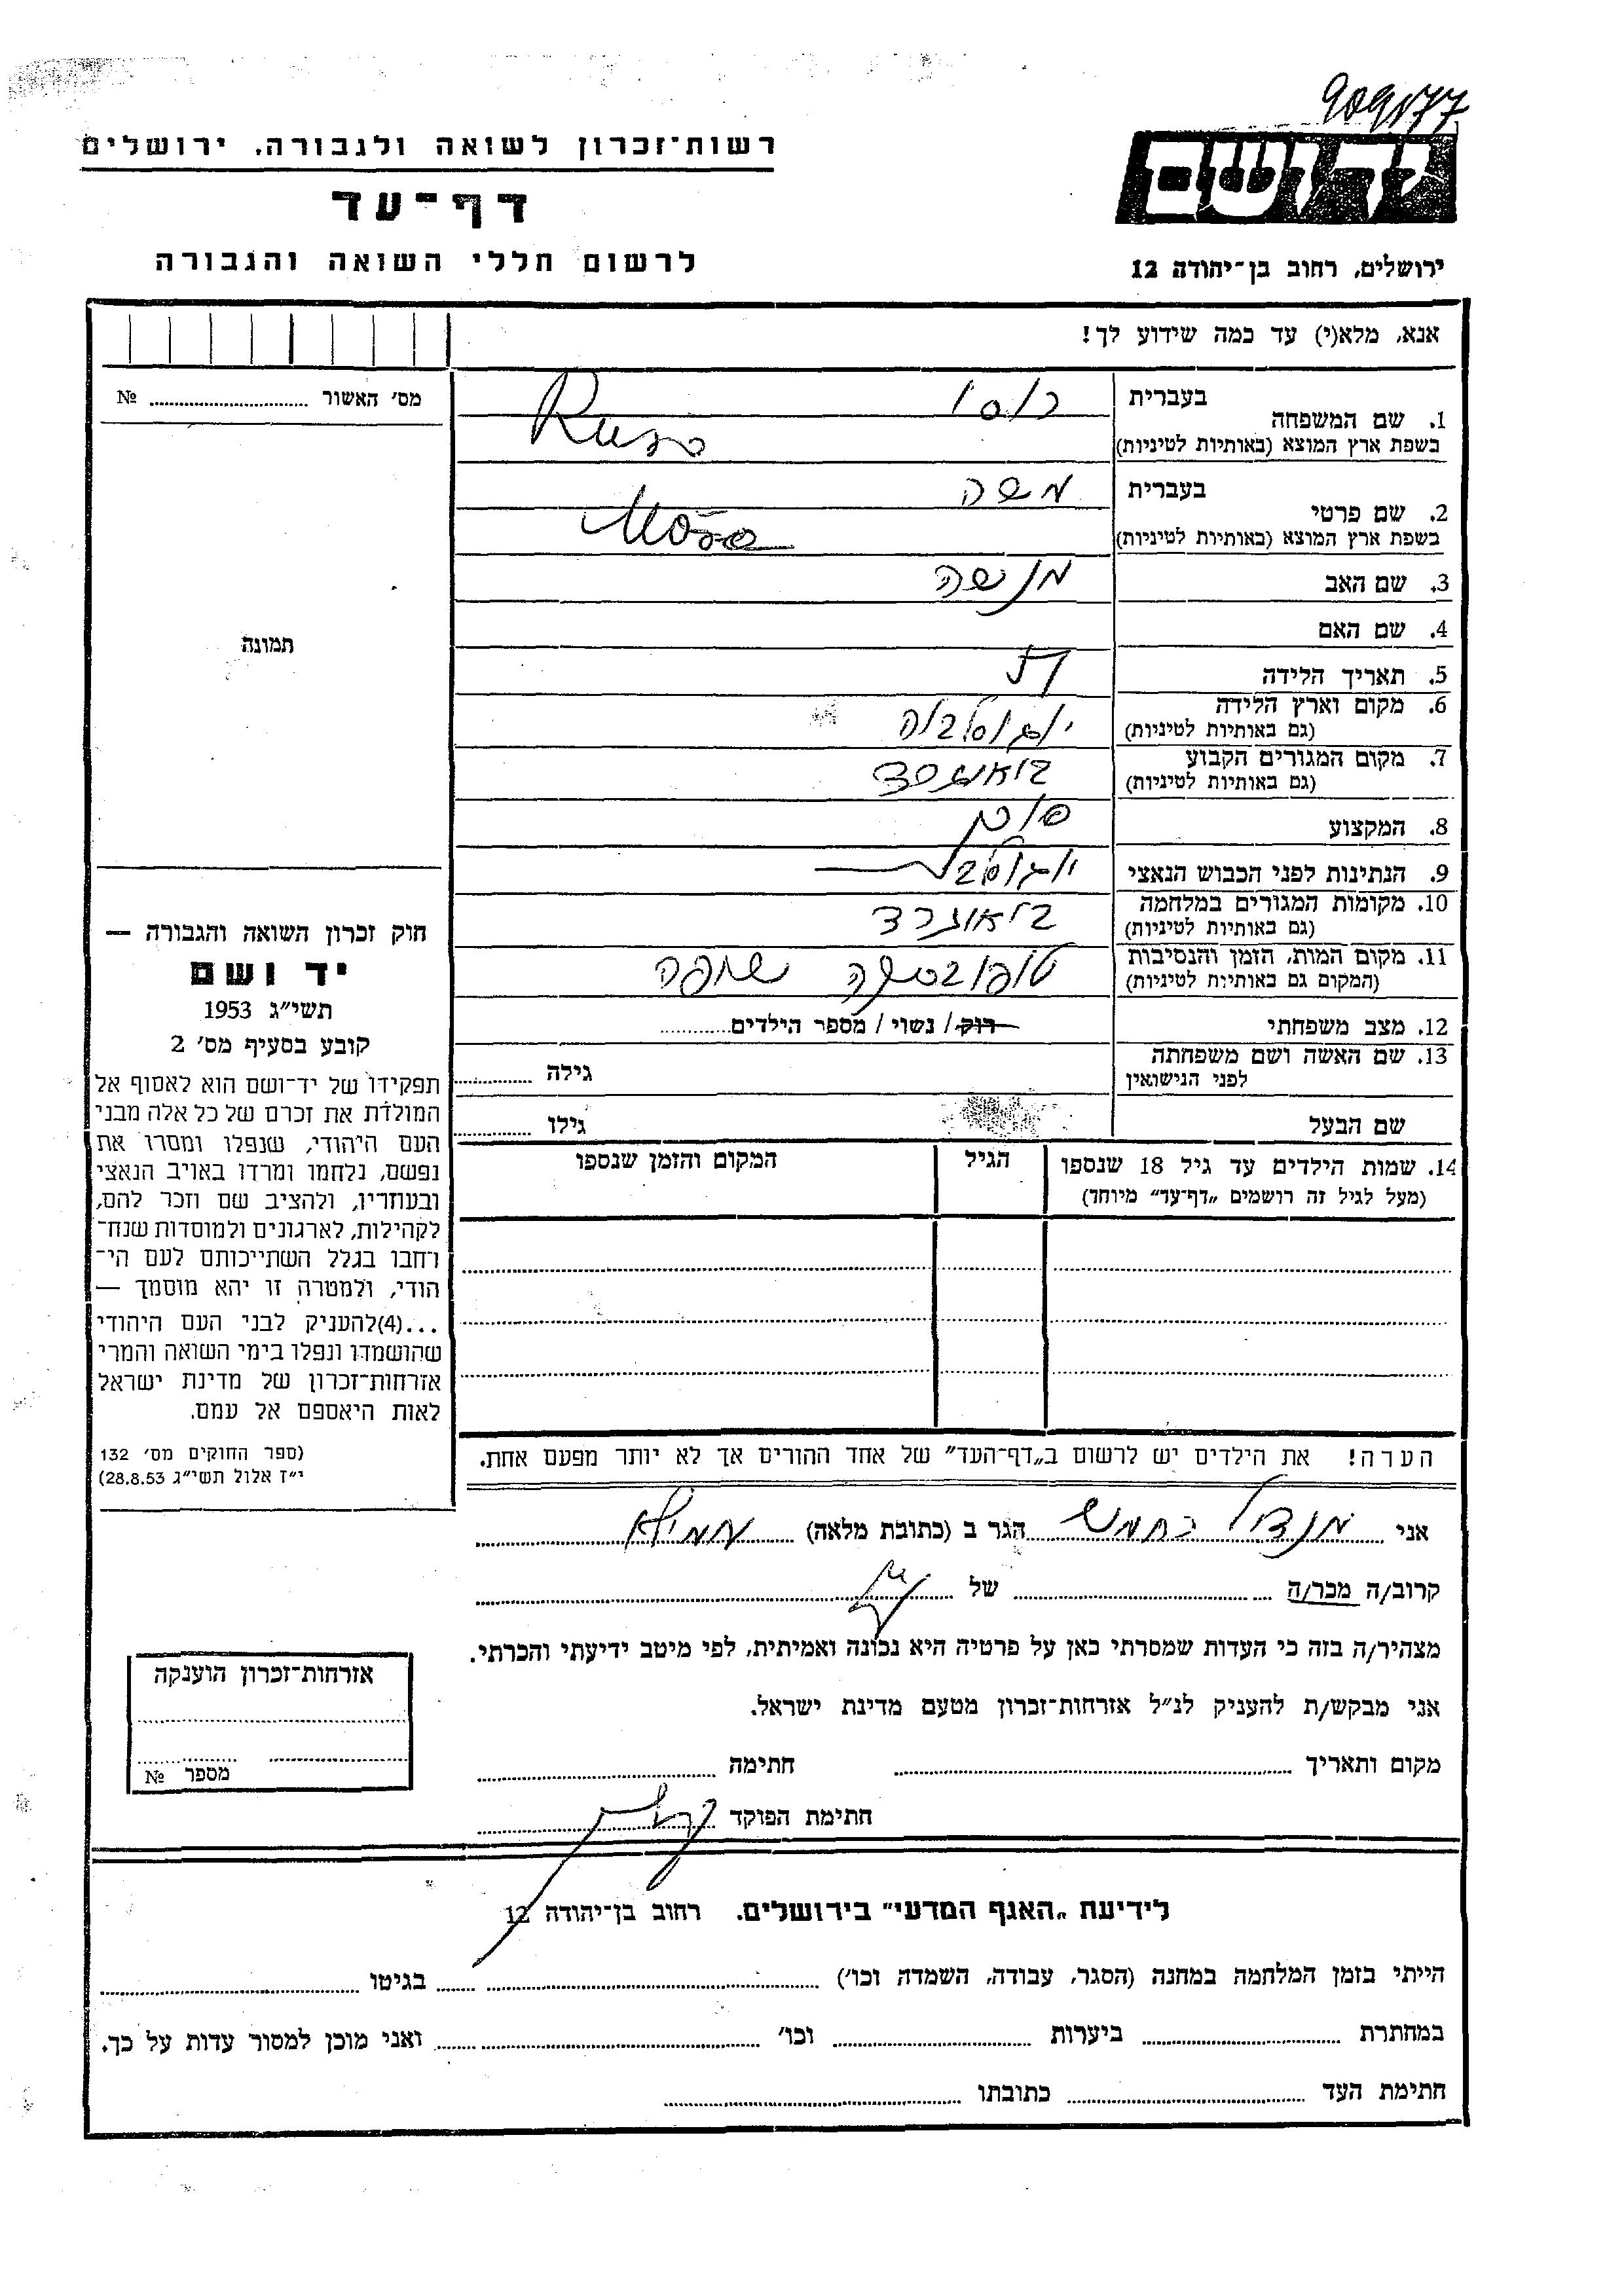 909177
רשות־זכרון לשואה ולגבורה. ירושלים
דף־עד
לרשום חללי השואה והגבורה
יד ושם
ירושלים, רחוב בן־יהודה 12
אנא, מלא(י) עד כמה שידוע לך!
מס׳ האשור № 
1. שם המשפחה
בעברית רוסו
בשפת ארץ המוצא (באותיות לטיניות) Russo
2. שם פרטי
בעברית משה
בשפת ארץ המוצא (באותיות לטיניות)
3. שם האב מנשה
4. שם האם
5. תאריך הלידה
6. מקום וארץ הלידה יוגוסלביה
(גם באותיות לטיניות)
7. מקום המגורים הקבוע ביאוגרד
(גם באותיות לטיניות)
8. המקצוע סוכן
9. הנתינות לפני הכבוש הנאצי יוגוסלב
10. מקומות המגורים במלחמה ביאוגרד
(גם באותיות לטיניות)
11. מקום המות, הזמן והנסיבות טופובסקה שופה
(המקום גם באותיות לטיניות)
12. מצב משפחתי רוק/ נשוי / מספר הילדים
13. שם האשה ושם משפחתה גילה
לפני הנישואין
שם הבעל גילו
14. שמות הילדים עד גיל 18 שנספו הגיל המקום והזמן שנספו
(מעל לגיל זה רושמים „דף־עד״ מיוחד)
הערה! את הילדים יש לרשום ב„דף־העד״ של אחד ההורים אך לא יותר מפעם אחת.
תמונה
חוק זכרון השואה והגבורה —
יד ושם
תשי״ג 1953
קובע בסעיף מס׳ 2
תפקידו של יד־ושם הוא לאסוף אל
המולדת את זכרם של כל אלה מבני
העם היהודי, שנפלו ומסרו את
נפשם, נלחמו ומרדו באויב הנאצי
ובעוזריו, ולהציב שם וזכר להם,
לקהילות, לארגונים ולמוסדות שנח־
רבו בגלל השתייכותם לעם הי־
הודי, ולמטרה זו יהא מוסמך —
...(4)להעניק לבני העם היהודי
שהושמדו ונפלו בימי השואה והמרי
אזרחות־זכרון של מדינת ישראל
לאות היאספם אל עמם.
(ספר החוקים מס׳ 132
י״ז אלול תשי״ג 28.8.53)
אני מנדל הגר ב (כתובת מלאה)
קרוב/ה מכר/ה של
מצהיר/ה בזה כי העדות שמסרתי כאן על פרטיה היא נכונה ואמיתית, לפי מיטב ידיעתי והכרתי.
אני מבקש/ת להעניק לנ״ל אזרחות־זכרון מטעם מדינת ישראל.
מקום ותאריך חתימה
חתימת הפוקד
אזרחות־זכרון הוענקה
מספר №
לידיעת „האגף המדעי״ בירושלים. רחוב בן־יהודה 12
הייתי בזמן המלחמה במחנה (הסגר, עבודה, השמדה וכו׳) בגיטו
במחתרת ביערות וכו׳ ואני מוכן למסור עדות על כך.
חתימת העד כתובתו